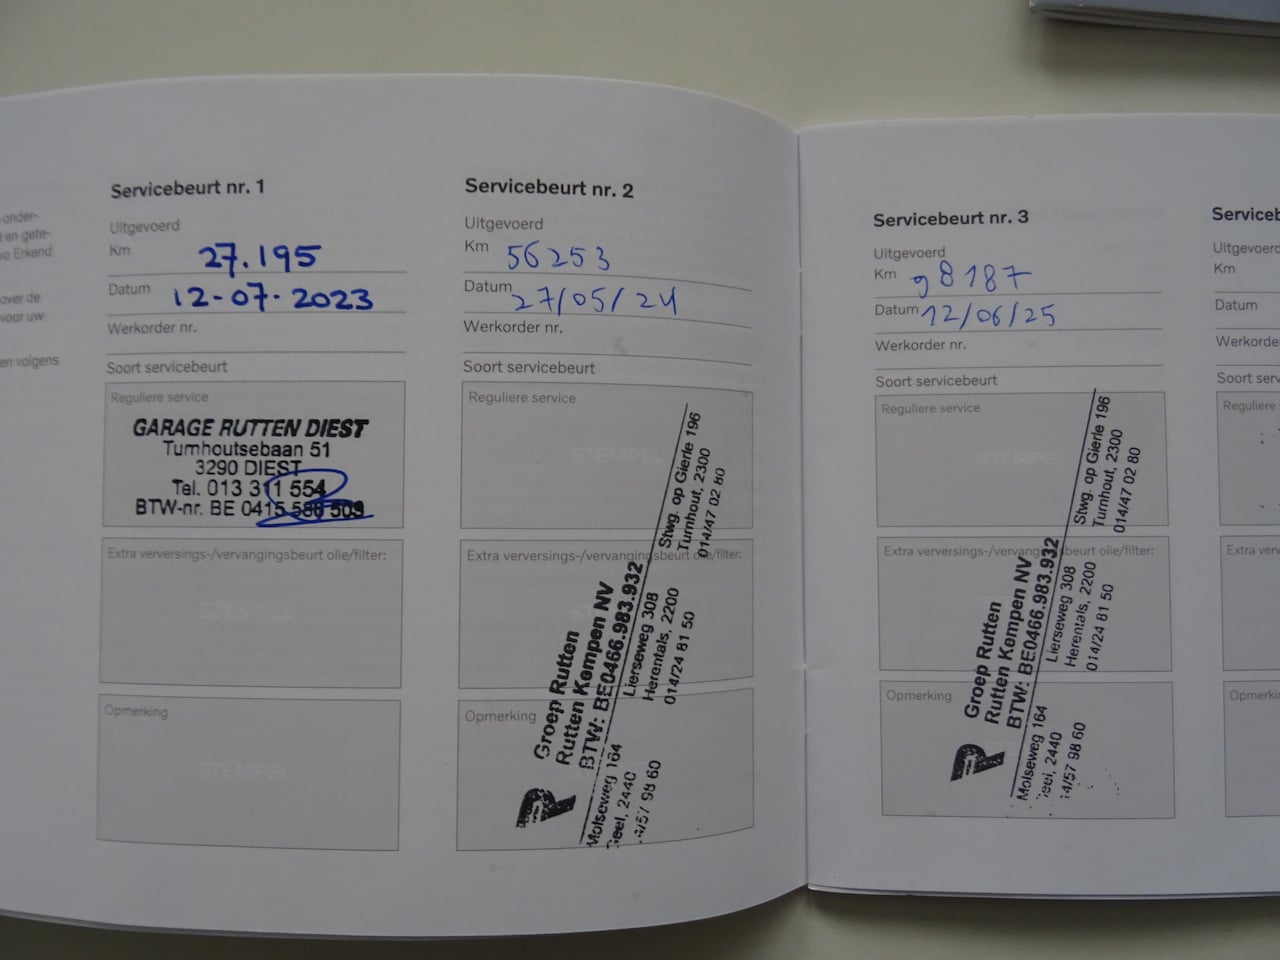 onder-
en gete-
vo Erkend
over de
voor uw
en volgens
Servicebeurt nr. 1
Uitgevoerd
Km 27.195
Datum 12-07-2023
Werkorder nr.
Soort servicebeurt
Reguliere service
GARAGE RUTTEN DIEST
Turnhoutsebaan 51
3290 DIEST
Tel. 013 311 554
BTW-nr. BE 0415 586 509
Extra verversings-/vervangingsbeurt olie/filter:
STEMPEL
Opmerking
STEMPEL
Servicebeurt nr. 2
Uitgevoerd
Km 56253
Datum 27/05/24
Werkorder nr.
Soort servicebeurt
Reguliere service
STEMPEL
Extra verversings-/vervangingsbeurt olie/filter:
Opmerking
Groep Rutten
Rutten Kempen NV
BTW: BE0466.983.932
Molseweg 164
Geel, 2440
14/57 98 60
Lierseweg 308
Herentals, 2200
014/24 81 50
Stwg. op Gierle 196
Turnhout, 2300
014/47 02 80
Servicebeurt nr. 3
Uitgevoerd
Km 98187
Datum 12/06/25
Werkorder nr.
Soort servicebeurt
Reguliere service
STEMPEL
Extra verversings-/vervangingsbeurt olie/filter:
Opmerking
Groep Rutten
Rutten Kempen NV
BTW: BE0466.983.932
Molseweg 164
eel, 2440
14/57 98 60
Lierseweg 308
Herentals, 2200
014/24 81 50
Stwg. op Gierle 196
Turnhout, 2300
014/47 02 80
Serviceb
Uitgevoerd
Km
Datum
Werkorde
Soort serv
Reguliere
Extra verv
Opmerkin